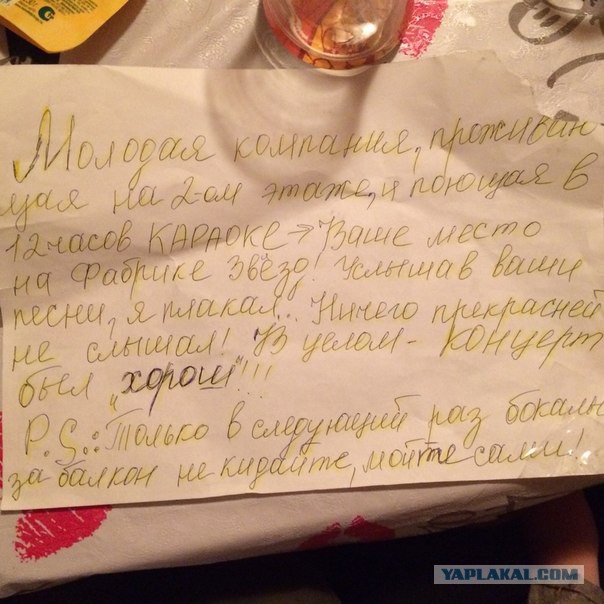 Молодая компания, проживаю-
щая на 2-ом этаже, и поющая в
12 часов КАРАОКЕ → Ваше место
на Фабрике Звёзд! Услышав ваши
песни, я плакал... Ничего прекрасней
не слышал! В целом - концерт
был „хорош"!!!
P.S.: Только в следующий раз бокалы
за балкон не кидайте, мойте сами!
YAPLAKAL.COM